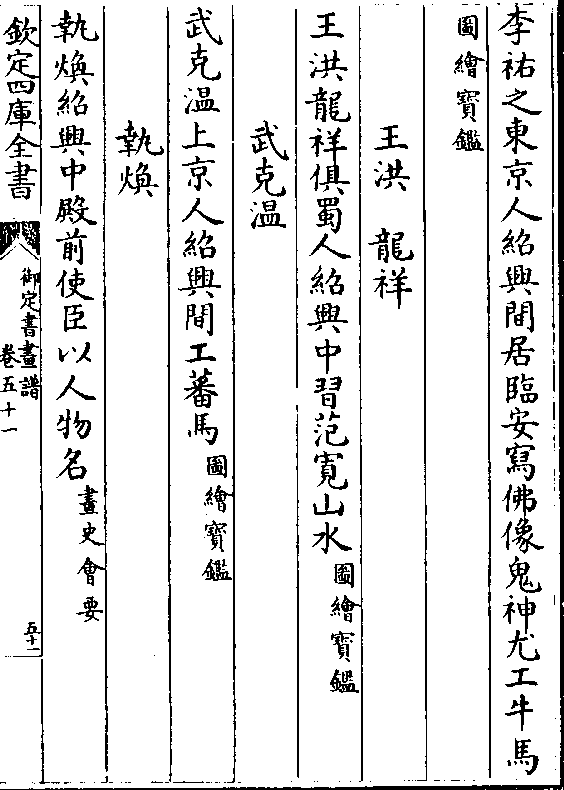 李祐之東京人紹興間居臨安寫佛像鬼神尤工牛馬
圖繪寶鑑
王洪　龍祥
王洪龍祥俱蜀人紹興中習范寬山水圖繪寶鑑
武克溫
武克溫上京人紹興間工蕃馬圖繪寶鑑
執煥
執煥紹興中殿前使臣以人物名畫史會要
欽定四庫全書
御定書畫譜
卷五十一
五十一